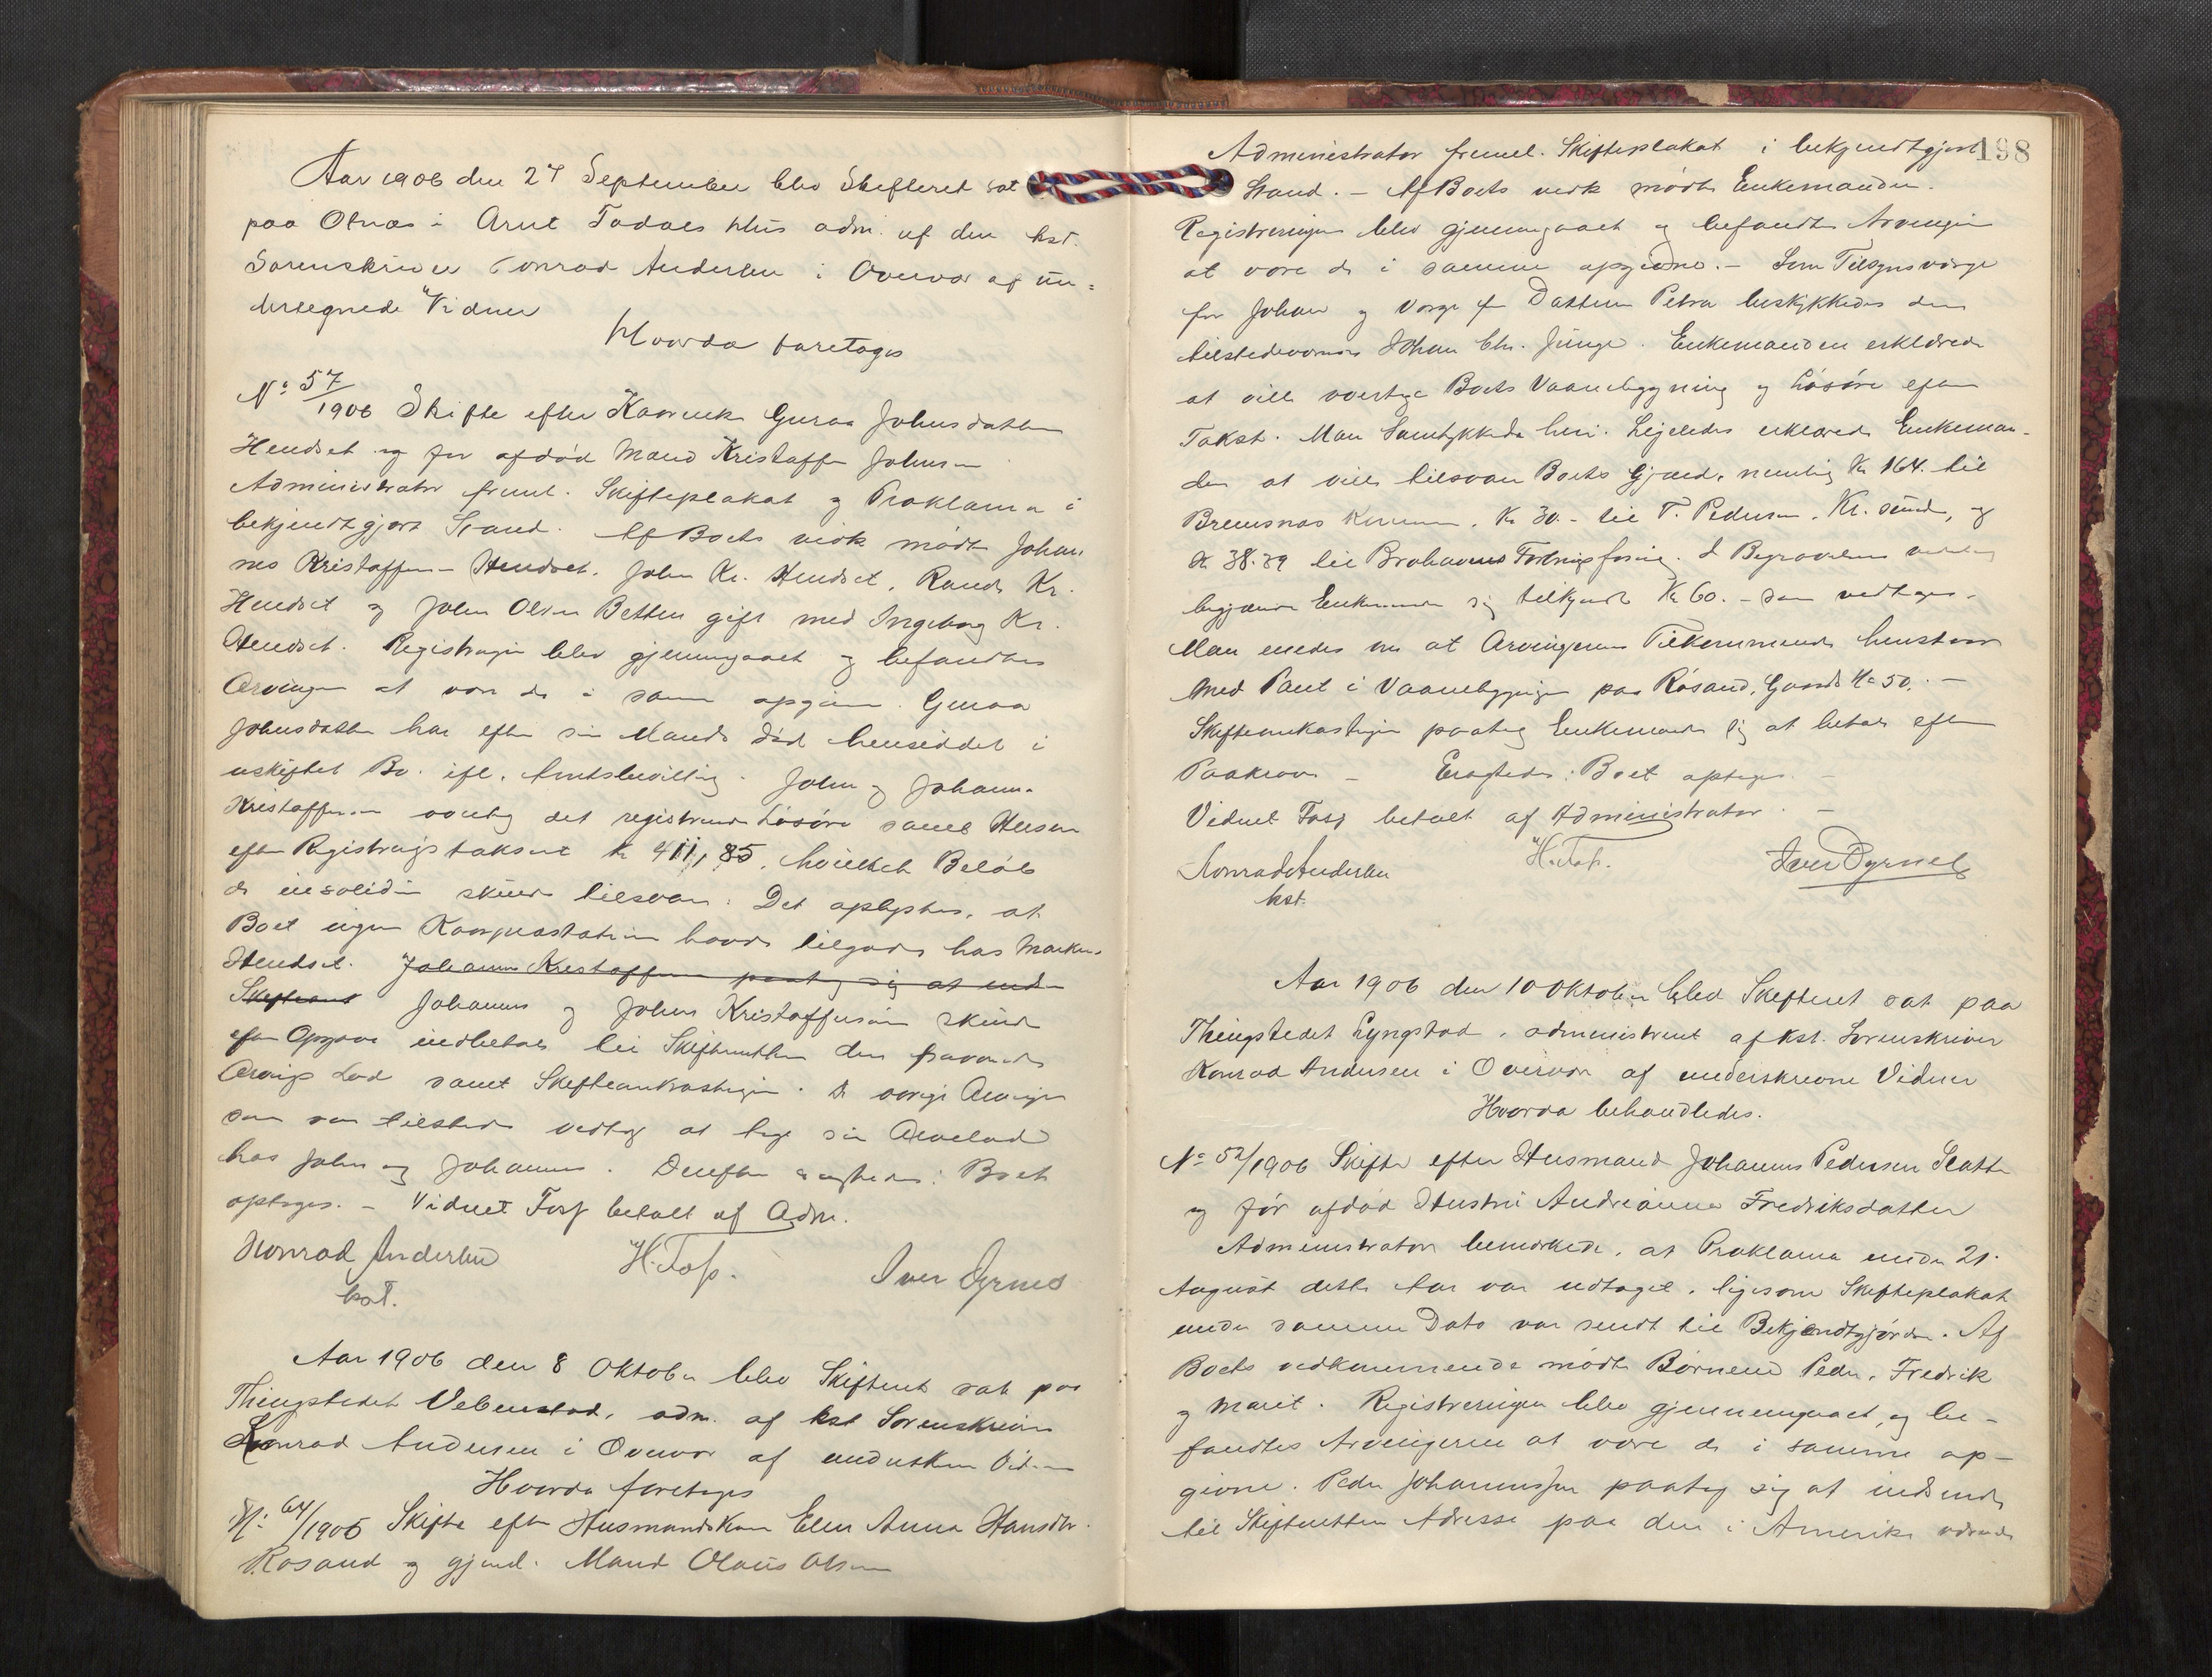 Aar 1906 den 27 September blev Skifteret sat
paa Olnæs i Arnt Todals Hus adm. af den kst.
Sorenskriver Conrad Andersen i Overvær af un-
dertegnede Vidner
Hvorda foretoges
No 57/1906 Skifte efter Kaarenke Guraa Johnsdatter
Hendset og før afdød Mand Kristoffer Johnsen
Administrator freml. Skifteplakat og Proklama i
bekjendtgjort Stand. Af Boets vedk. mødte Johan
nes Kristoffersen Hendset, John Kr. Hendset, Randi Kr.
Hendset og John Olsen Betten gift med Ingeborg Kr.
Hendset. Registreringen blev gjennemgaaet og befandtes
Arvingerne at være de i samme opgivne. Guraa
Johnsdatter har efter sin Mands Død hensiddet i
uskiftet Bo ifl. Amtsbevilling. John og Johannes
Kristoffersen overtog det registrerede Løsøre samt Husene
efter Registreringstaksten Kr 411,85, hvilket Beløb
de in solidum skulde tilsvare. Det oplystes, at
Boet ingen Kaarprestation havde tilgode hos Markus
Hendset. Johannes Kristoffersen paatog sig at ind-
Skifteomk Johannes og John Kristoffersen skulde
efter Opgave indbetale til Skifteretten den fraværende
Arvings Lod samt Skifteomkostningerne. De øvrige Arvinger
som var tilstede vedtog at tage sin Arvelod
hos John og Johannes. Derefter eragtedes: Boet
optages. – Vidnet Foss betalt af Adm.
Konrad Andersen H. Foss. Iver Dyrnes
kst.
Aar 1906 den 8 Oktober blev Skifteret sat paa
Thingstedet Vebenstad, adm. af kst Sorenskriver
Konrad Andersen i Overvær af underskrevne Vidner
Hvorda foretoges
No 64/1906 Skifte efter Husmandskone Elen Anna Hansdtr.
Røsand og gjenl. Mand Olaus Olsen
198
Administrator freml. Skifteplakat i bekjendtgjort
Stand. – Af Boets vedk mødte Enkemanden.
Registreringen blev gjennemgaaet og befandtes Arvingerne
at være de i samme opgivne. – Som Tilsynsværge
for Johan og Værge for Datteren Petra beskikkedes den
tilstedeværende Johan Chr. Junge. Enkemanden erklærede
at ville overtage Boets Vaanebygning og Løsøre efter
Takst. Man samtykkede heri. Ligeledes erklærede Enkeman-
den at ville tilsvare Boets Gjæld, nemlig Kr 164. til
Bremsnæs Kommune, Kr 30. – til T. Pedersen, Kr.sund, og
Kr 38.39 til Brohavns Forbrugsforening. I Begravelses
begjærede Enkemanden sig tilkjendt Kr 60. – som vedtoges.
Man enedes om at Arvingernes Tilkommende henstaar
med Pant i Vaanebygningen paa Røsand, Gaards No 50. –
Skifteomkostningerne paatog Enkemanden sig at betale efter
Paakrav – Eragtedes: Boet optages. –
Vidnet Foss betalt af Administrator. –
Konrad Andersen H. Foss. Iver Dyrnes
kst.
Aar 1906 den 10 Oktober blev Skifteret sat paa
Thingstedet Lyngstad, administreret af kst. Sorenskriver
Konrad Andersen i Overvær af underskrevne Vidner
Hvorda behandledes.
No 52/1906 Skifte efter Husmand Johannes Pedersen
og før afdød Hustru Andreanna Fredriksdatter
Administrator bemærkede, at Proklama under 21.
August dette Aar var udtaget, ligesom Skifteplakat
under samme Dato var sendt til Bekjendtgjørelse. Af
Boets vedkommende mødte Børnene Peder, Fredrik
og Marit. Registreringen blev gjennemgaaet, og be-
fandtes Arvingerne at være de i samme op-
givne. Peder Johannessen paatog sig at indsende
til Skifteretten Adresse paa den i Amerika værende